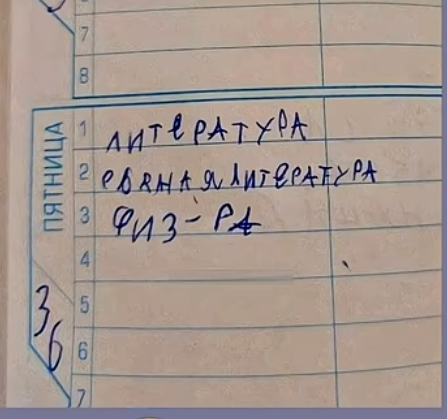 7
8
ПЯТНИЦА
1 ЛИТЕРАТУРА
2 РОДНАЯ ЛИТЕРАТУРА
3 ФИЗ-РА
4
5
6
7
36